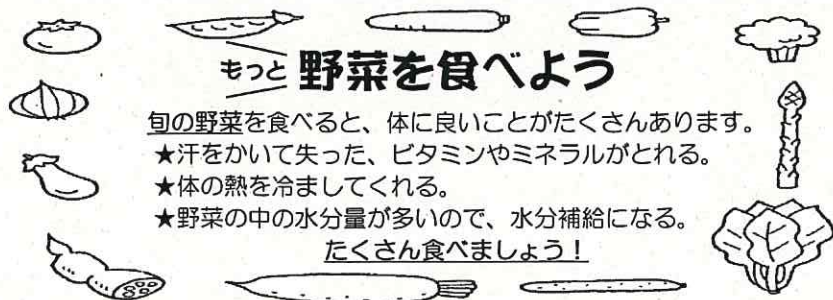 もっと 野菜を食べよう
旬の野菜を食べると、体に良いことがたくさんあります。
★汗をかいて失った、ビタミンやミネラルがとれる。
★体の熱を冷ましてくれる。
★野菜の中の水分量が多いので、水分補給になる。
たくさん食べましょう！